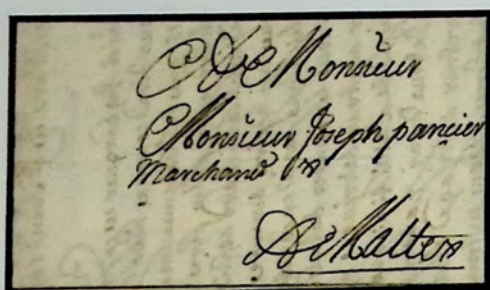 A Monsieur
Monsieur Joseph pancier
Marchand
A Malte